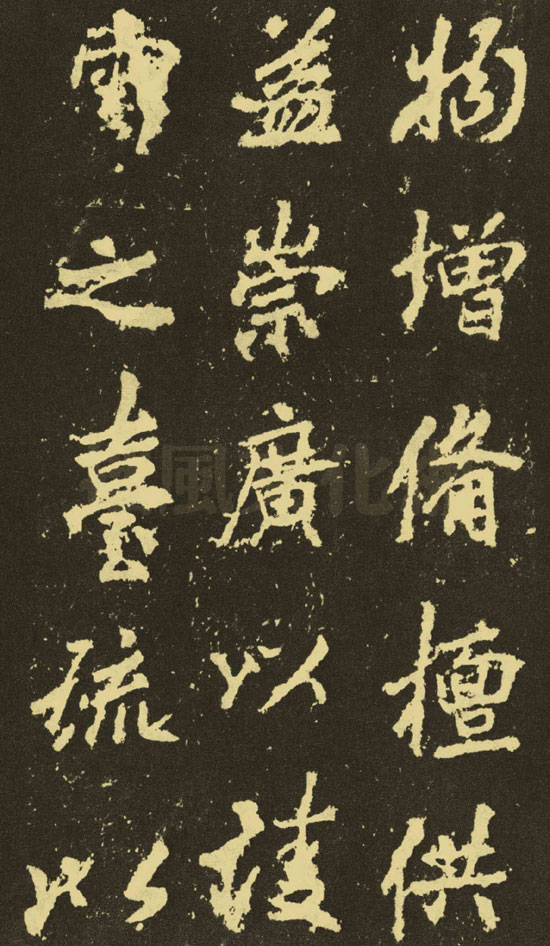 物增備檀供
益崇廣以淩
雲之臺疏以